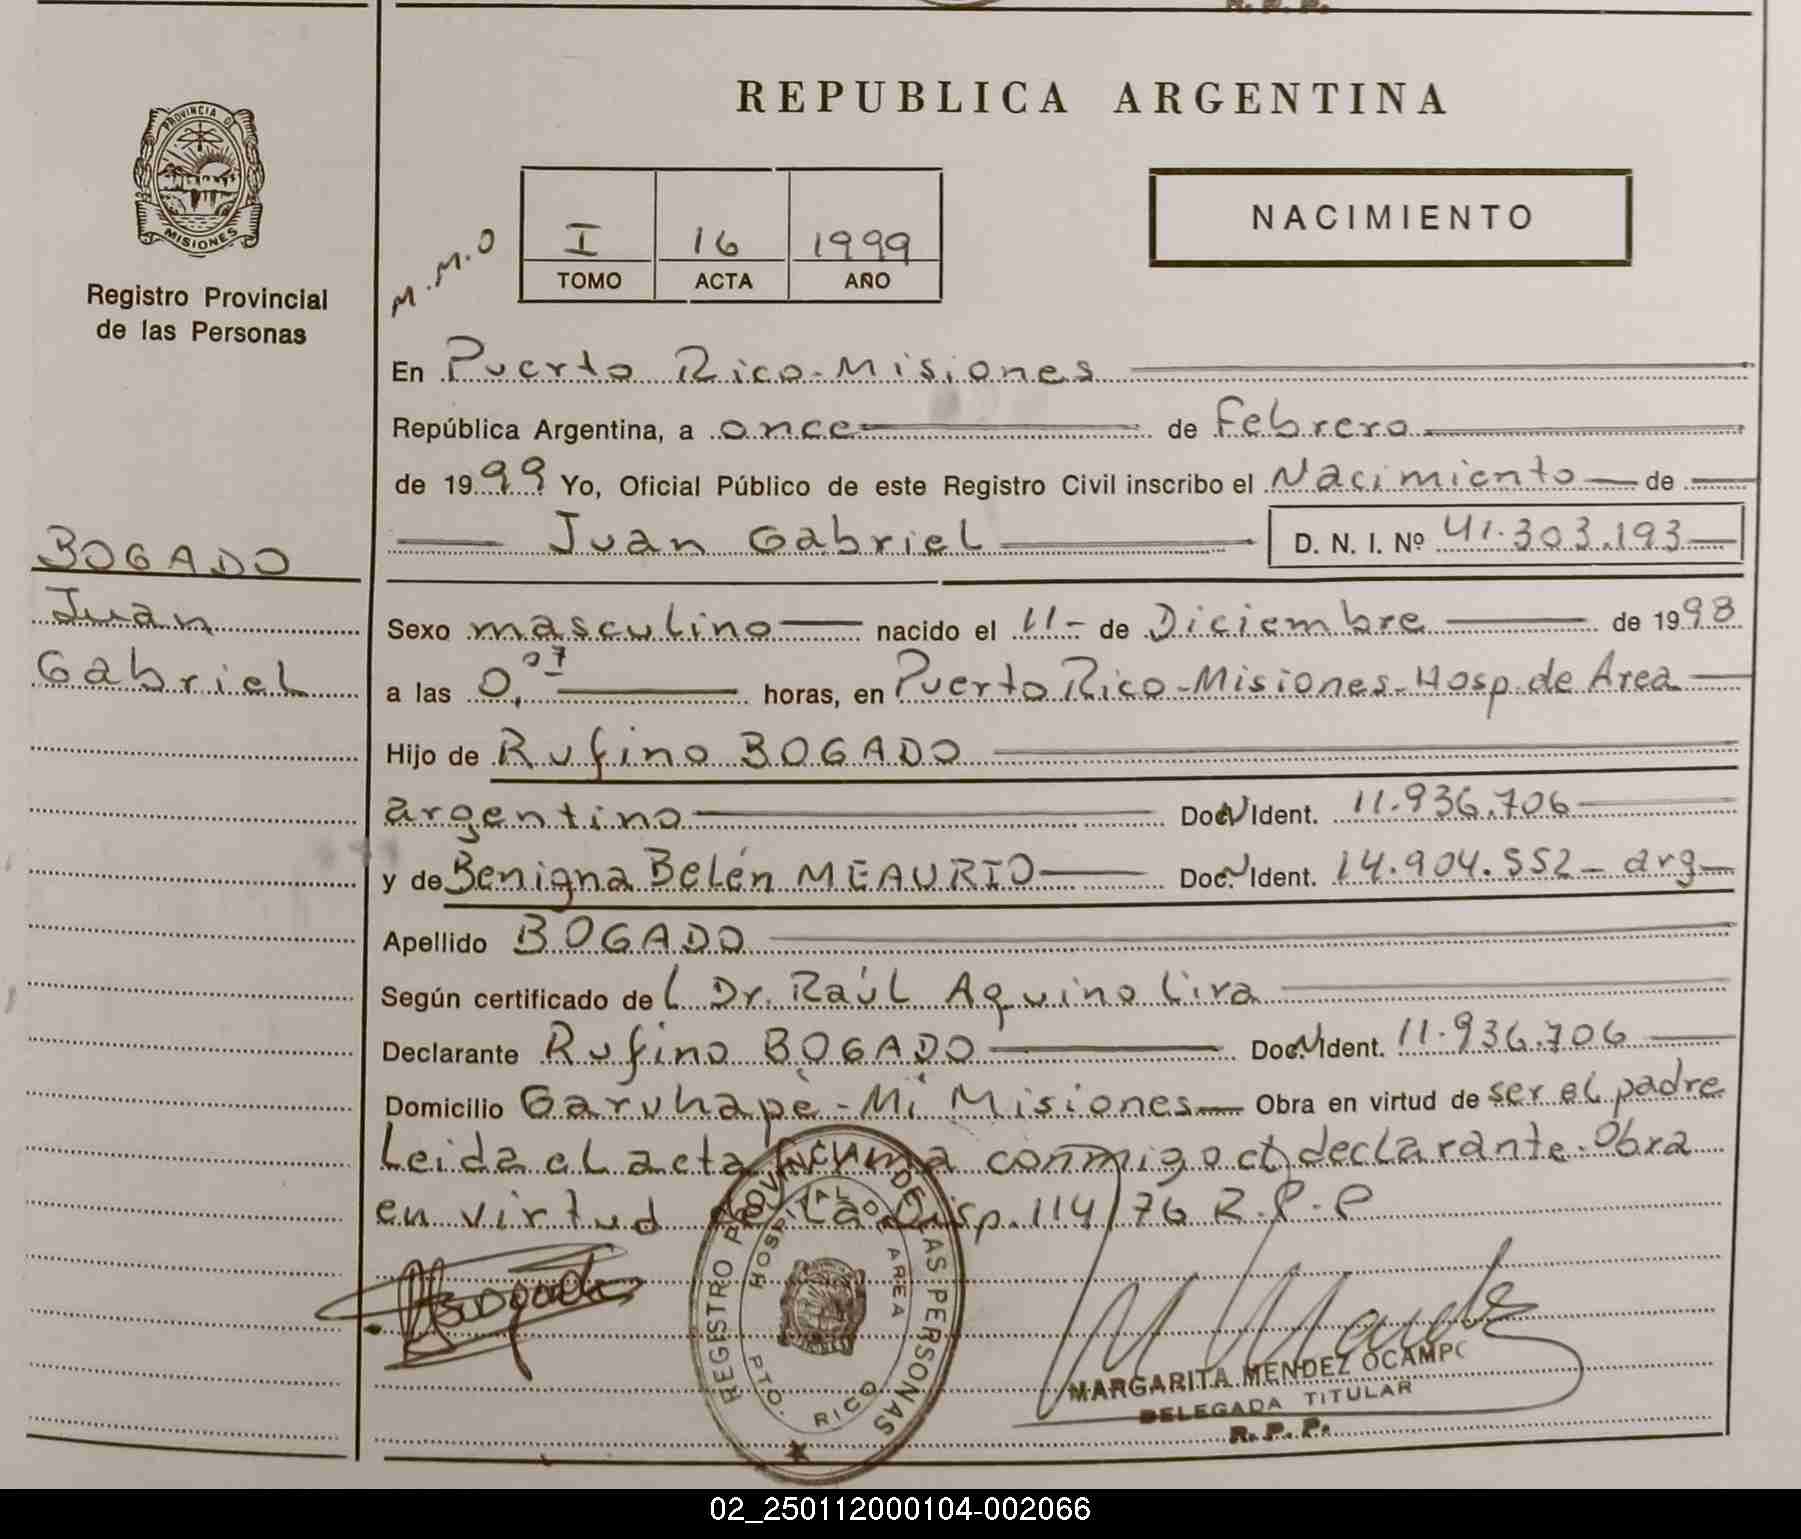 R. P. P.
REPUBLICA ARGENTINA
PROVINCIA DE
MISIONES
Registro Provincial
de las Personas
M.M.O
I 16 1999
TOMO ACTA AÑO
NACIMIENTO
En Puerto Rico-Misiones
República Argentina, a once de Febrero
de 1999 Yo, Oficial Público de este Registro Civil inscribo el Nacimiento de
Juan Gabriel D. N. I. Nº 41.303.193
BOGADO
Juan
Gabriel
Sexo masculino nacido el 11- de Diciembre de 1998
a las 0,07 horas, en Puerto Rico-Misiones-Hosp. de Area
Hijo de Rufino BOGADO
argentino Doc. Ident. 11.936.706
y de Benigna Belén MEAURIO Doc. Ident. 14.904.552- arg
Apellido BOGADO
Según certificado del Dr. Raúl Aquino Lira
Declarante Rufino BOGADO Doc. Ident. 11.936.706
Domicilio Garuhapé-Mi Misiones Obra en virtud de ser el padre
Leida el acta firma conmigo el declarante. Obra
en virtud de la Disp. 114/76 R.P.P
REGISTRO PROVINCIAL DE LAS PERSONAS
HOSPITAL DE AREA
PTO. RICO
MARGARITA MENDEZ OCAMPO
DELEGADA TITULAR
R. P. P.
02_250112000104-002066